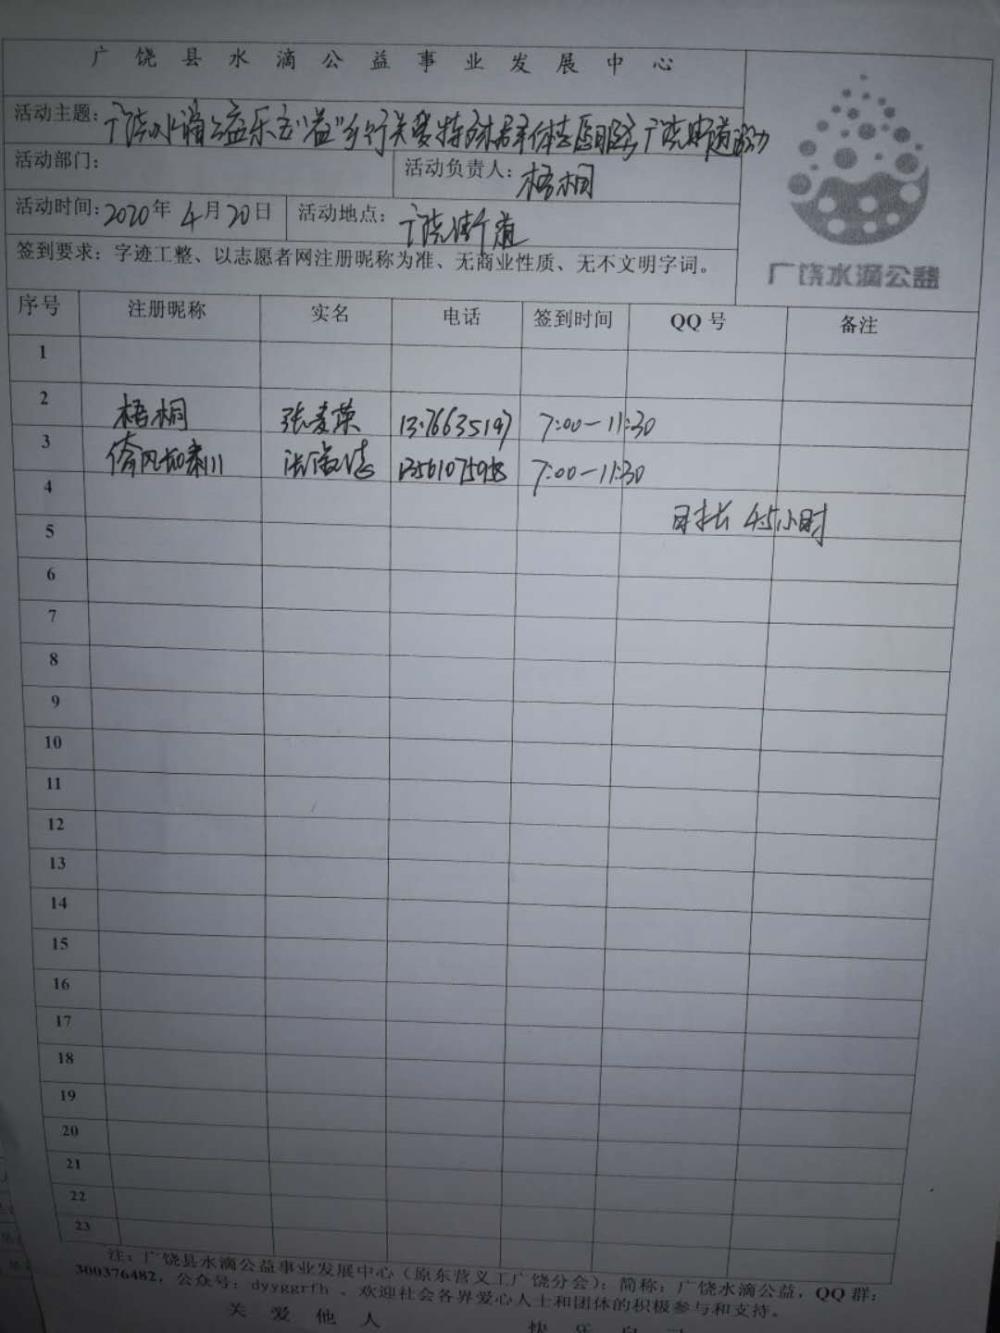 广饶县水滴公益事业发展中心
活动主题：广饶水滴公益乐安"益"乡行关爱特殊群体志愿服务广饶街道活动
活动部门： 活动负责人：梧桐
活动时间：2020年4月20日 活动地点：广饶街道
签到要求：字迹工整、以志愿者网注册昵称为准、无商业性质、无不文明字词。
广饶水滴公益
序号 注册昵称 实名 电话 签到时间 QQ号 备注
1
2 梧桐 7:00-11:30
3 7:00-11:30
4
时长 4.5小时
5
6
7
8
9
10
11
12
13
14
15
16
17
18
19
20
21
22
23
注：广饶县水滴公益事业发展中心（原东营义工广饶分会）；简称：广饶水滴公益，QQ群：
300376482，公众号：dyyggrfh 、欢迎社会各界爱心人士和团体的积极参与和支持。
关爱他人 快乐自己